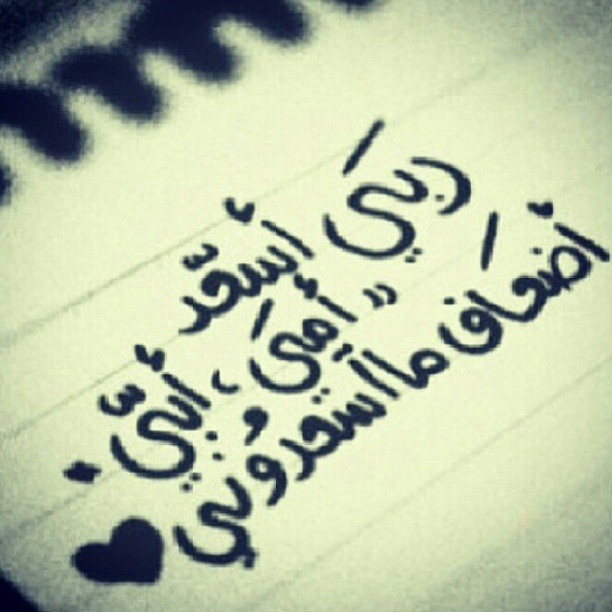 ربي أسعد
" أمي ، أبي .
أضعاف ما اسعدوني ♥